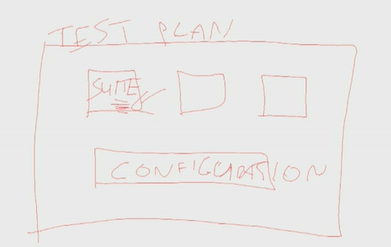 TEST PLAN
SUITE
CONFIGURATION